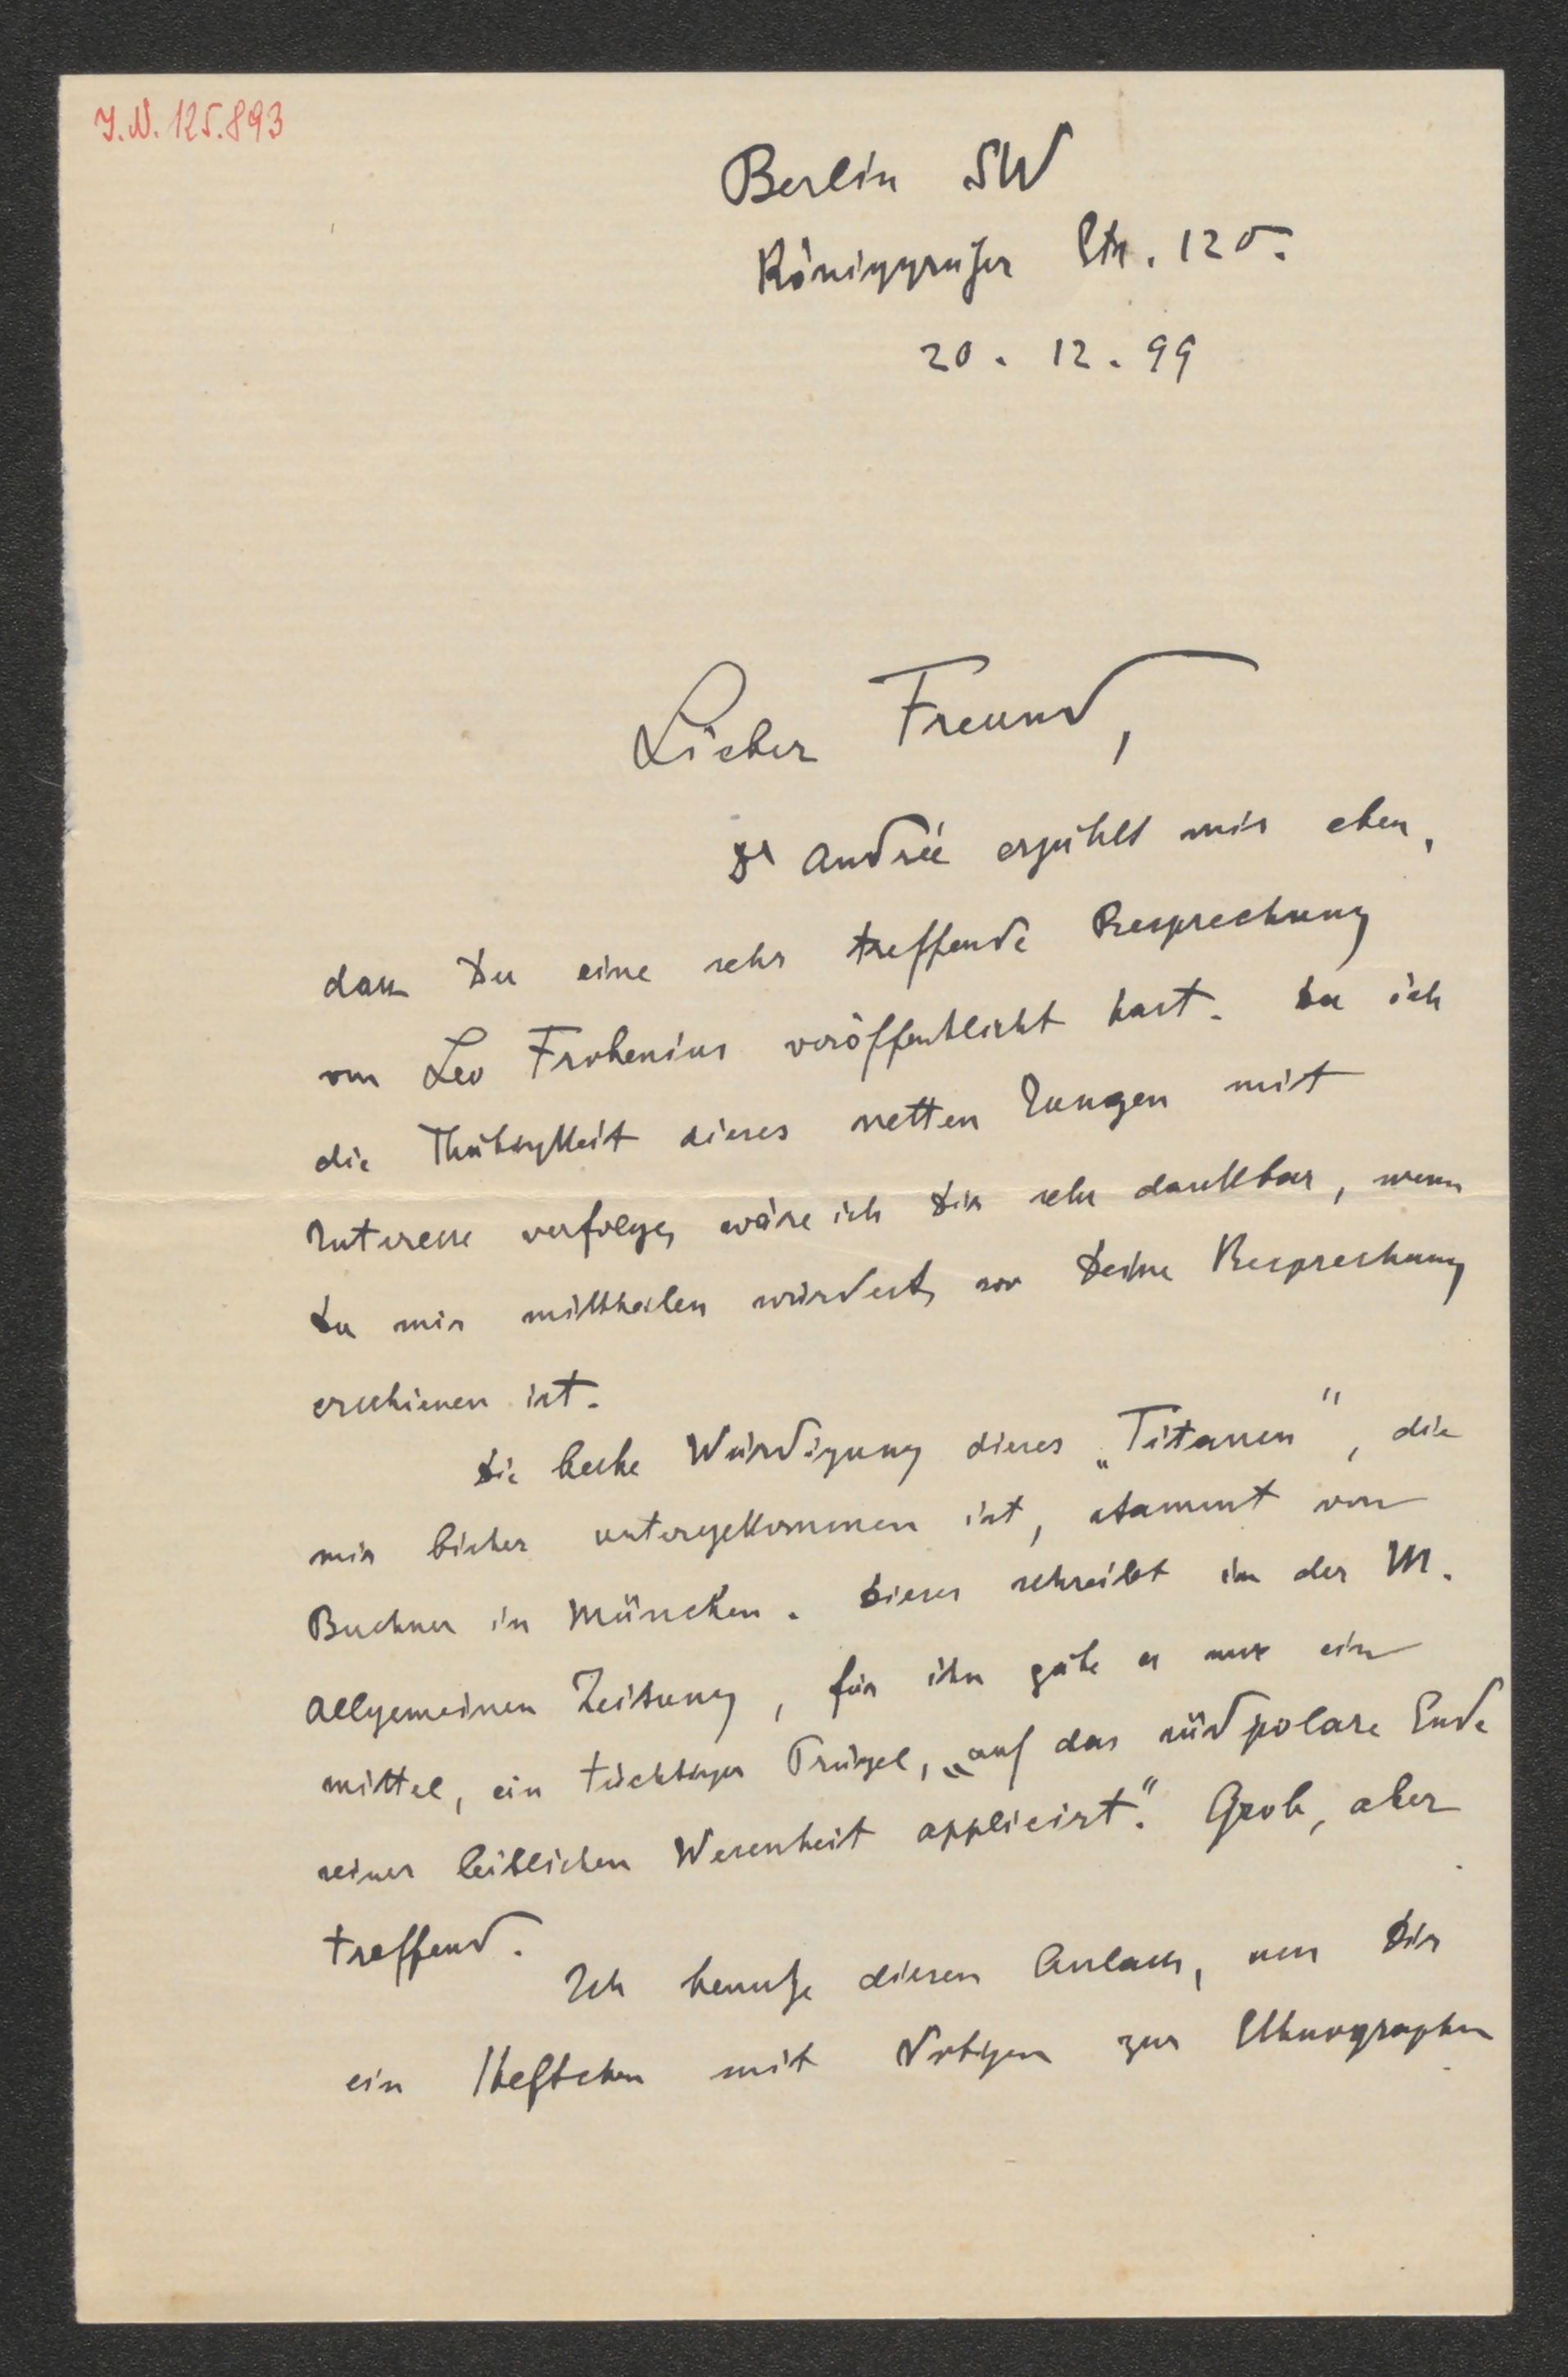 J.N. 125.893
Berlin SW
Königgrätzer Str. 120.
20. 12. 99
Lieber Freund,
Dr Andrée erzählt mir eben,
dass Du eine sehr treffende Besprechung
von Leo Frobenius veröffentlicht hast. Da ich
die Thätigkeit dieses netten Jungen mit
Interesse verfolge, wäre ich Dir sehr dankbar, wenn
Du mir mittheilen würdest, wo Deine Besprechung
erschienen ist.
Die beste Würdigung dieses „Titanen“, die
mir bisher untergekommen ist, stammt von
Buchner in München. Dieser schreibt in der M.
Allgemeinen Zeitung, für ihn gäbe es nur ein
mittel, ein tüchtiger Prügel, „auf das südpolare Ende
seiner leiblichen Wesenheit applicirt.“ Grob, aber
treffend.
Ich benutze diesen Anlass, um Dir
ein Heftchen mit Notizen zur Ethnographie